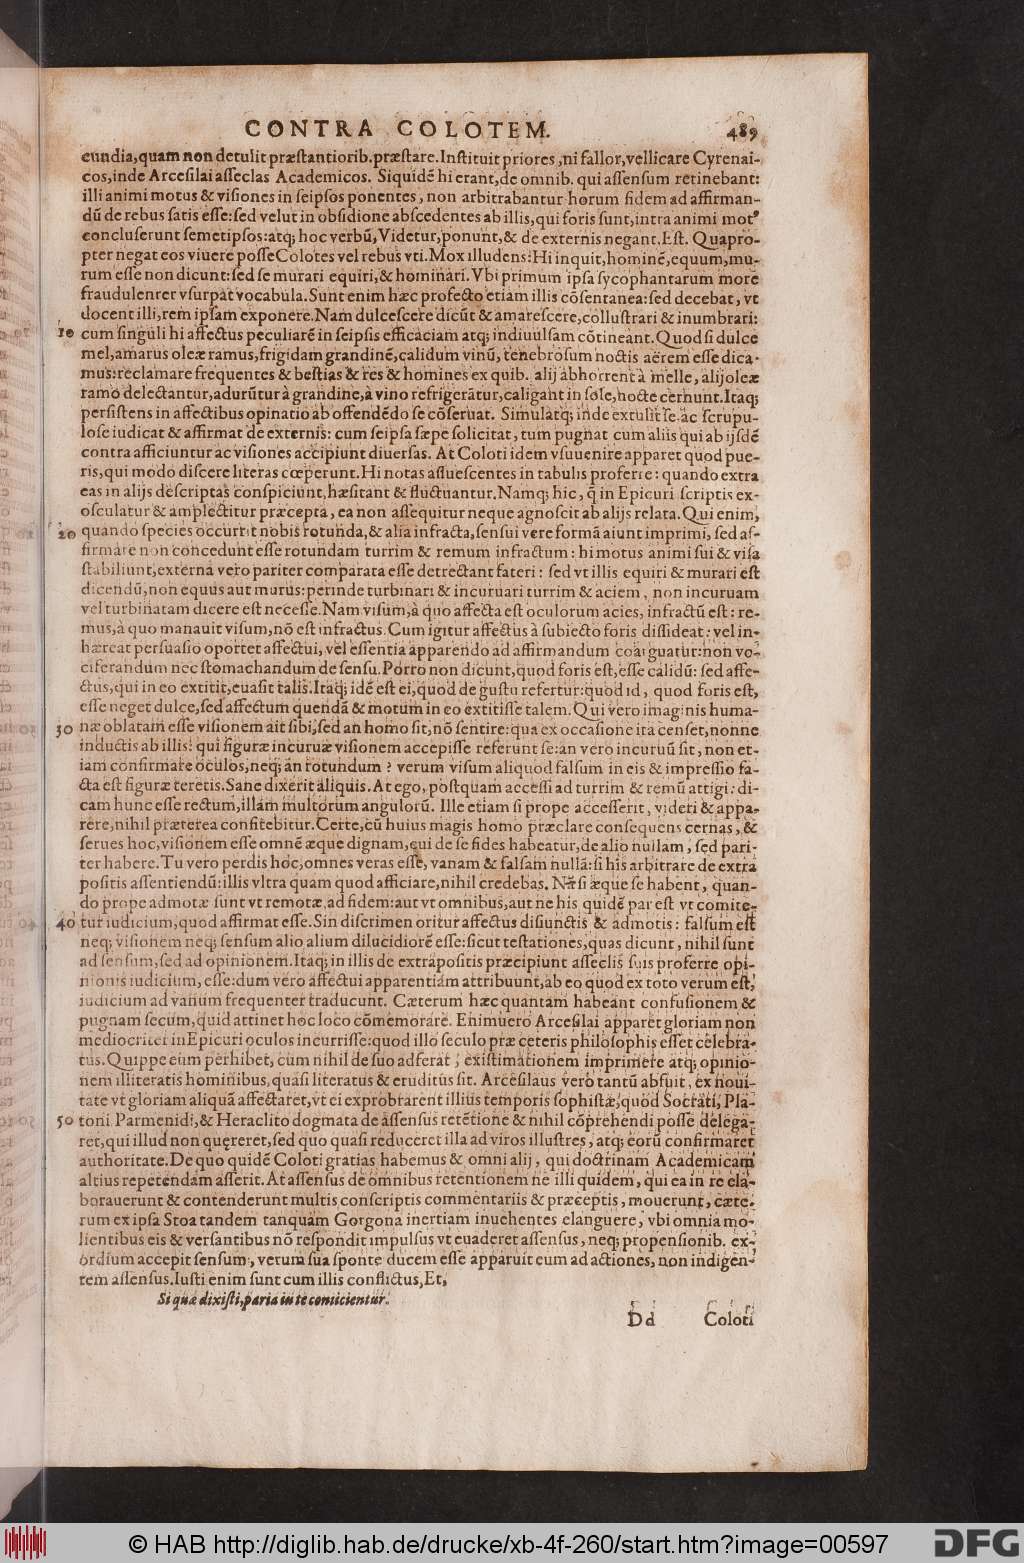 CONTRA COLOTEM. 489
cundia,quam non detulit præstantiorib.præstare.Instituit priores,ni fallor,vellicare Cyrenai-
cos,inde Arcesilai asseclas Academicos. Siquidē hi erant,de omnib. qui assensum retinebant:
illi animi motus & visiones in seipsos ponentes, non arbitrabantur horum fidem ad affirman-
dū de rebus satis esse:sed velut in obsidione abscedentes ab illis,qui foris sunt,intra animi motꝰ
concluserunt semetipsos:atq; hoc verbū,Videtur,ponunt,& de externis negant.Est. Quapro-
pter negat eos viuere posse Colotes vel rebus vti.Mox illudens:Hi inquit,hominē,equum,mu-
rum esse non dicunt:sed se murari equiri,& hominari.Vbi primum ipsa sycophantarum more
fraudulenter vsurpat vocabula.Sunt enim hæc profecto etiam illis cōsentanea:sed decebat, vt
docent illi,rem ipsam exponere.Nam dulcescere dicūt & amarescere,collustrari & inumbrari:
10 cum singuli hi affectus peculiarē in seipsis efficaciam atq; indiuulsam cōtineant.Quod si dulce
mel,amarus oleæ ramus,frigidam grandinē,calidum vinū, tenebrosum noctis aërem esse dica-
mus:reclamare frequentes & bestias & res & homines ex quib. alij abhorrent à melle, alij oleæ
ramo delectantur,adurūtur à grandine,à vino refrigerātur,caligant in sole,nocte cernunt.Itaq;
persistens in affectibus opinatio ab offendēdo se cōseruat. Simulatq; inde extulit se ac scrupu-
lose iudicat & affirmat de externis: cum seipsa sæpe solicitat, tum pugnat cum aliis qui ab ijsdē
contra afficiuntur ac visiones accipiunt diuersas. At Coloti idem vsuuenire apparet quod pue-
ris,qui modo discere literas cœperunt.Hi notas assuescentes in tabulis proferre: quando extra
eas in alijs descriptas conspiciunt,hæsitant & fluctuantur.Namq; hic, q̄ in Epicuri scriptis ex-
osculatur & amplectitur præcepta, ea non assequitur neque agnoscit ab alijs relata.Qui enim,
20 quando species occurrit nobis rotunda,& alia infracta,sensui vere formā aiunt imprimi, sed af-
firmare non concedunt esse rotundam turrim & remum infractum: hi motus animi sui & visa
stabiliunt,externa vero pariter comparata esse detrectant fateri: sed vt illis equiri & murari est
dicendū,non equus aut murus:perinde turbinari & incuruari turrim & aciem, non incuruam
vel turbinatam dicere est necesse.Nam visum,à quo affecta est oculorum acies, infractū est: re-
mus,à quo manauit visum,nō est infractus.Cum igitur affectus à subiecto foris dissideat: vel in-
hæreat persuasio oportet affectui,vel essentia apparendo ad affirmandum coarguatur:non vo-
ciferandum nec stomachandum de sensu.Porro non dicunt,quod foris est,esse calidū: sed affe-
ctus,qui in eo extitit,euasit talis.Itaq; idē est ei,quod de gustu refertur:quod id, quod foris est,
esse neget dulce,sed affectum quendā & motum in eo extitisse talem.Qui vero imaginis huma-
30 næ oblatam esse visionem ait sibi,sed an homo sit,nō sentire:qua ex occasione ita censet,nonne
inductis ab illis? qui figuræ incuruæ visionem accepisse referunt se:an vero incuruū sit, non et-
iam confirmare oculos,neq; an rotundum ? verum visum aliquod falsum in eis & impressio fa-
cta est figuræ teretis.Sane dixerit aliquis.At ego,postquam accessi ad turrim & remū attigi: di-
cam hunc esse rectum,illam multorum angulorū. Ille etiam si prope accesserit, videri & appa-
rere,nihil præterea confitebitur.Certe,cū huius magis homo præclare consequens cernas, &
serues hoc,visionem esse omnē æque dignam,cui de se fides habeatur,de alio nullam, sed pari-
ter habere.Tu vero perdis hoc,omnes veras esse, vanam & falsam nullā:si his arbitrare de extra
positis assentiendū:illis vltra quam quod afficiare,nihil credebas. Nā si æque se habent, quan-
do prope admotæ sunt vt remotæ,ad fidem:aut vt omnibus,aut ne his quidē par est vt comite-
40 tur iudicium,quod affirmat esse.Sin discrimen oritur affectus disiunctis & admotis: falsum est
neq; visionem neq; sensum alio alium dilucidiorē esse:sicut testationes,quas dicunt, nihil sunt
ad sensum,sed ad opinionem.Itaq; in illis de extrapositis præcipiunt asseclis suis proferre opi-
nionis iudicium, esse:dum vero affectui apparentiam attribuunt,ab eo quod ex toto verum est,
iudicium ad varium frequenter traducunt. Cæterum hæc quantam habeant confusionem &
pugnam secum,quid attinet hoc loco cōmemorare. Enimuero Arcesilai apparet gloriam non
mediocriter in Epicuri oculos incurrisse:quod illo seculo præ ceteris philosophis esset celebra-
tus.Quippe eum perhibet, cum nihil de suo adferat, existimationem imprimere atq; opinio-
nem illiteratis hominibus,quasi literatus & eruditus sit. Arcesilaus vero tantū abfuit, ex noui-
tate vt gloriam aliquā affectaret,vt ei exprobrarent illius temporis sophistæ,quod Socrati, Pla-
50 toni Parmenidi,& Heraclito dogmata de assensus retētione & nihil cōprehendi posse delega-
ret,qui illud non quęreret,sed quo quasi reduceret illa ad viros illustres, atq; eorū confirmaret
authoritate.De quo quidē Coloti gratias habemus & omni alij, qui doctrinam Academicam
altius repetendam asserit.At assensus de omnibus retentionem ne illi quidem, qui ea in re ela-
borauerunt & contenderunt multis conscriptis commentariis & præceptis, mouerunt, cæte-
rum ex ipsa Stoa tandem tanquam Gorgona inertiam inuehentes elanguere, vbi omnia mo-
lientibus eis & versantibus nō respondit impulsus vt euaderet assensus, neq; propensionib. ex-
ordium accepit sensum, verum sua sponte ducem esse apparuit eum ad actiones, non indigen-
tem assensus.Iusti enim sunt cum illis conflictus,Et,
Si quæ dixisti,paria in te coniicientur.
Dd Coloti
© HAB http://diglib.hab.de/drucke/xb-4f-260/start.htm?image=00597
DFG